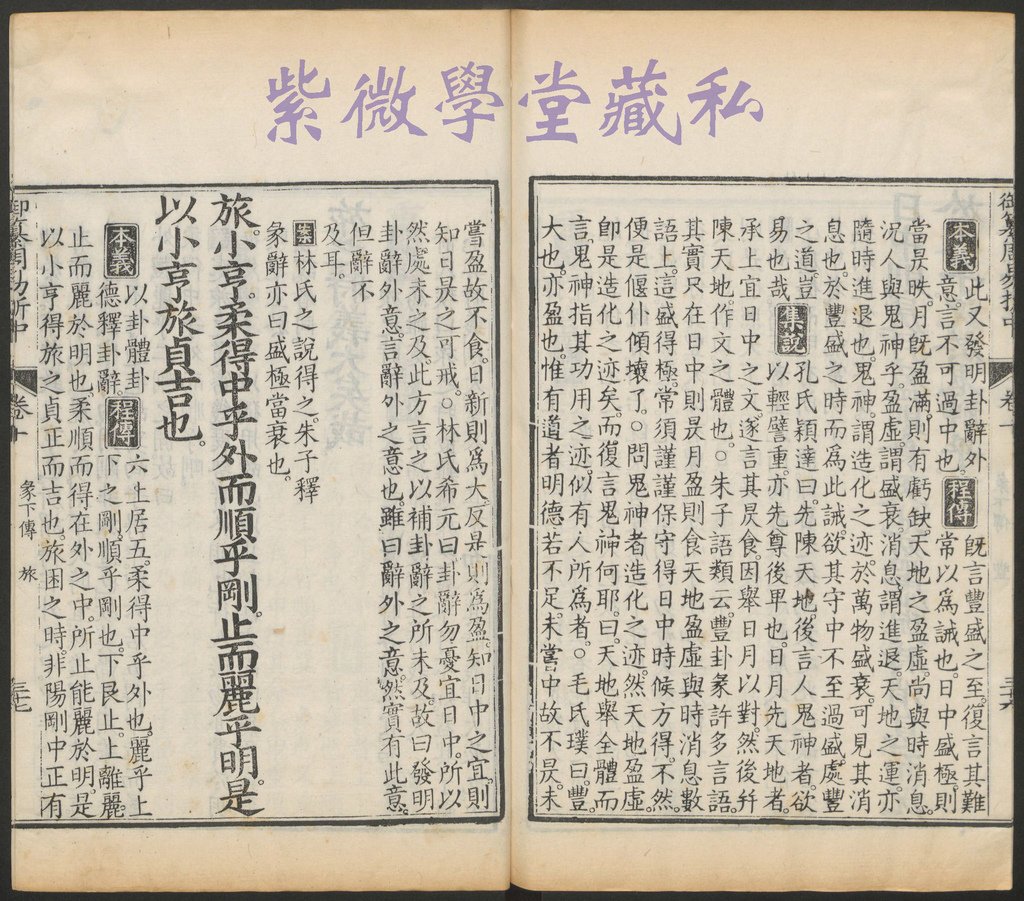 紫微學堂藏私
本義 此又發明卦辭外
意。言不可過中也。
程傳 既言豐盛之至。復言其難
常以爲誡也。日中盛極。則
當昃昳。月旣盈滿。則有虧缺。天地之盈虛。尚與時消息。
況人與鬼神乎。盈虛。謂盛衰。消息。謂進退。天地之運。亦
隨時進退也。鬼神。謂造化之迹。於萬物盛衰。可見其消
息也。於豐盛之時而爲此誡。欲其守中不至過盛。處豐
之道。豈
易也哉。
集說 孔氏穎達曰。先陳天地。後言人鬼神者。欲
以輕譬重。亦先尊後卑也。日月先天地者。
承上宜日中之文。遂言其昃食。因舉日月以對。然後幷
陳天地。作文之體也。○朱子語類云。豐卦彖許多言語。
其實只在日中則昃月盈則食天地盈虛與時消息數
語上。這盛得極。常須謹謹保守得日中時候方得。不然
便是偃仆傾壞了。○問鬼神者造化之迹。然天地盈虛。
卽是造化之迹矣。而復言鬼神何耶。曰。天地舉全體而
言。鬼神指其功用之迹。似有人所爲者。○毛氏璞曰。豐。
大也。亦盈也。惟有道者。明德若不足。未嘗中故不昃。未
嘗盈故不食。日新則爲大。反是則爲盈。知日中之宜。則
知日昃之可戒。○林氏希元曰。卦辭勿憂宜日中。所以
然處未之及。此方言之。以補卦辭之所未及。故曰發明
卦辭外意。言辭外之意也。雖曰辭外之意。然實有此意。
但辭不
及耳。
案 林氏之說得之。朱子釋
彖辭亦曰盛極當衰也。
旅小亨。柔得中乎外而順乎剛。止而麗乎明。是
以小亨旅貞吉也。
本義 以卦體卦
德釋卦辭。
程傳 六上居五。柔得中乎外也。麗乎上
下之剛。順乎剛也。下艮止。上離麗。
止而麗於明也。柔順而得在外之中。所止能麗於明。是
以小亨得旅之貞正而吉也。旅困之時。非陽剛中正有
御纂周易折中 卷十 彖下傳 旅